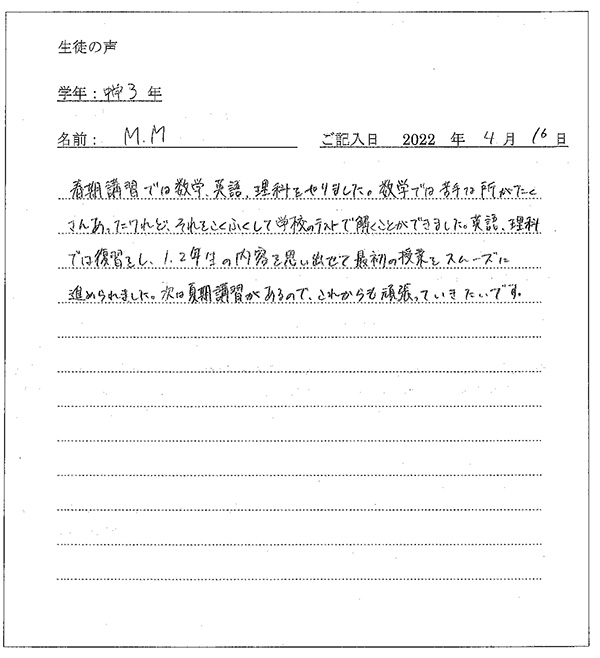 生徒の声
学年：中学3年
名前：M.M ご記入日 2022 年 4 月 16 日
春期講習では数学、英語、理科をやりました。数学では苦手な所がたく
さんあったけれど、それをこくふくして学校のテストで解くことができました。英語、理科
では復習をし、1.2年生の内容を思い出せて最初の授業をスムーズに
進められました。次は夏期講習があるので、これからも頑張っていきたいです。